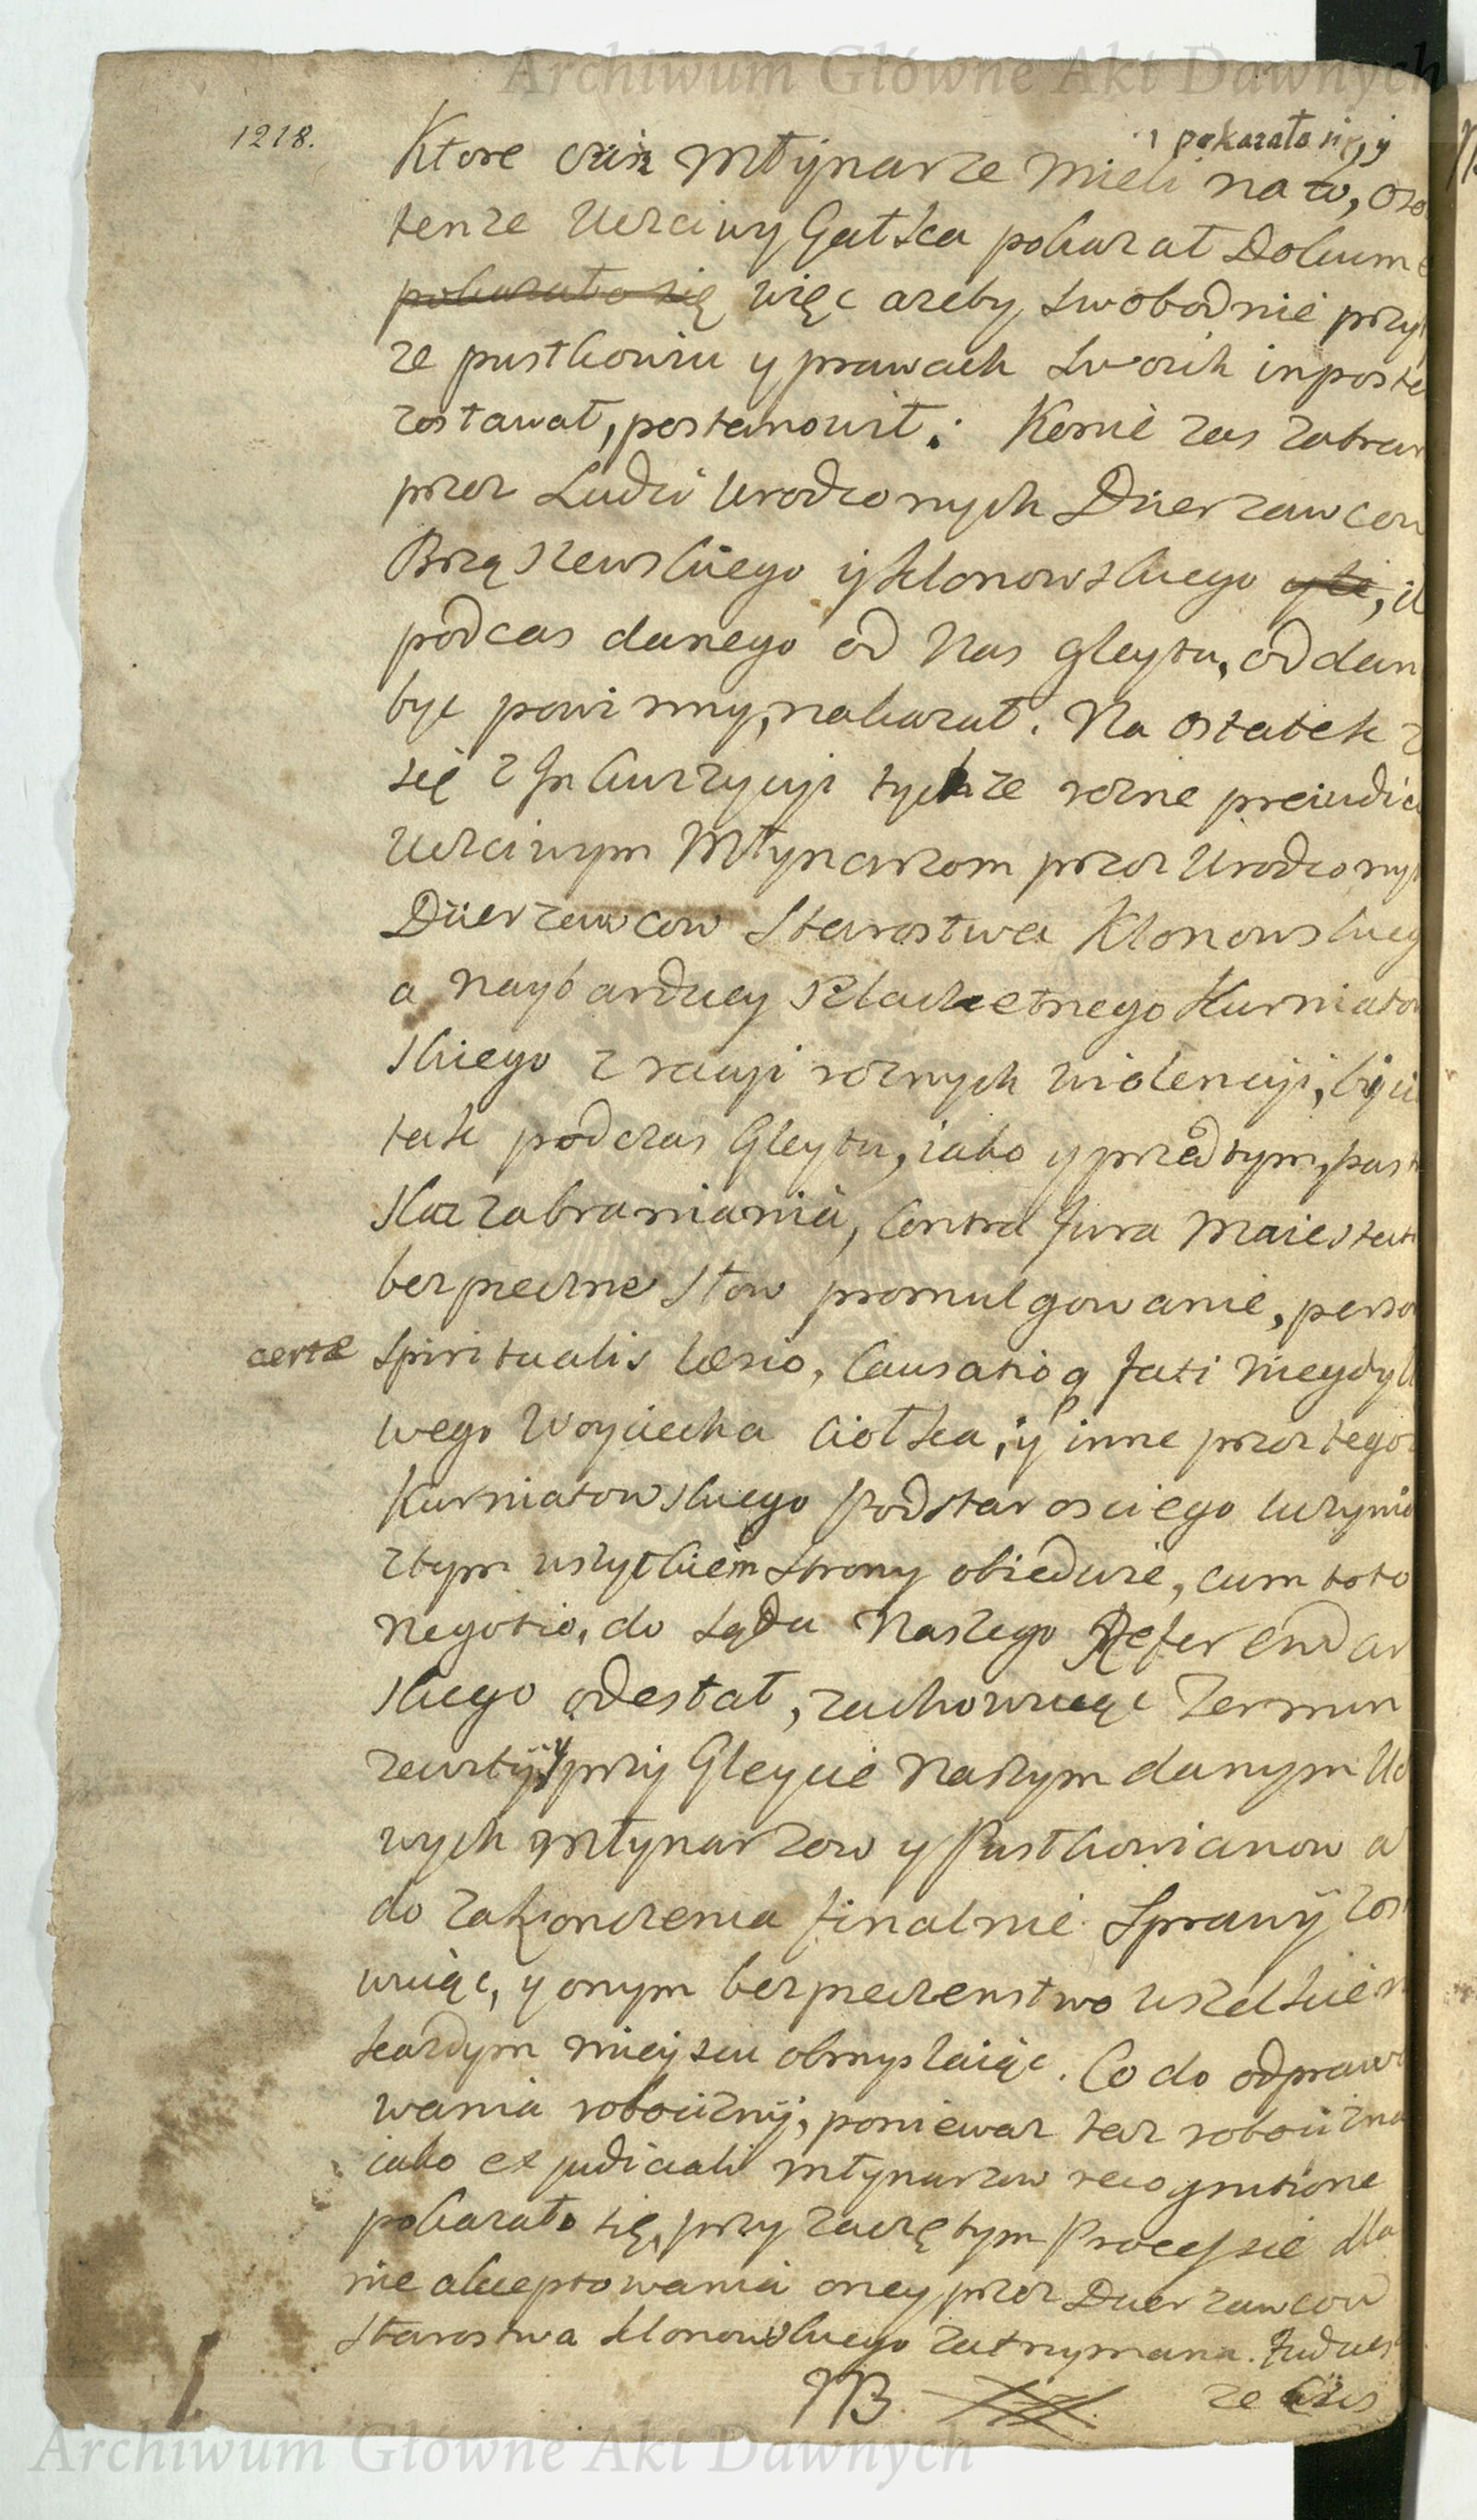 Archiwum Główne Akt Dawnych
1218.
pokazało się, y
Ktore oniz Młynarze Mieli na to, oso
tenze Uczciwy Gałka pokazał Dokume
pokazało się więc azeby swobodnie przy
ze pustkowiu y prawach swoich inposte
zostawał, postanowił. Konie zas zabran
przez Ludzi Urodzonych Dzierzawcow
Brząszewskiego y Klonowskiego
podczas danego od Nas Gleytu, oddan
być powinny, nakazał. Na ostatek
się z Inkwizycyi tychze rozne preiudic
Uczciwym Młynarzom przez Urodzonyh
Dzierzawcow Starostwa Klonowskieg
a naybardziey Szlachetnego Kurniatow
skiego z racyi roznych wiolencyi, bici
tak podczas Gleytu, iako y przedtym, past
zabraniania, Contra Jura Maiestat
bezpieczne słow promulgowanie, perso
certæ
Spiritualis læsio, Causatioq fati niegdy
wego Woyciecha Ciołka, y inne przez tegoz
Kurniatowskiego Podstarosciego uczynio
z tym wszytkiem Strony obiedwie, cum toto
Negotio, do Sądu Naszego Referendar
skiego odesłał, zachowuiąc Termin
zawity, y przy Gleycie Naszym danym Uc
wych Młynarzow y Pustkowianow a
do zakonczenia finalnie Sprawy zos
wuiąc, y onym bezpieczenstwo wszelkie
kazdym mieyscu obmyslaiąc. Co do odprawo
wania robocizny, poniewaz taz robocizna
iako ex judiciali młynarzow recognitione
pokazało się, przy zaczętym Processie dla
nie akceptowania oney przez Dzierzawcow
Starostwa Klonowskiego zatrzymana. Tudzies
NB. ze
Archiwum Główne Akt Dawnych